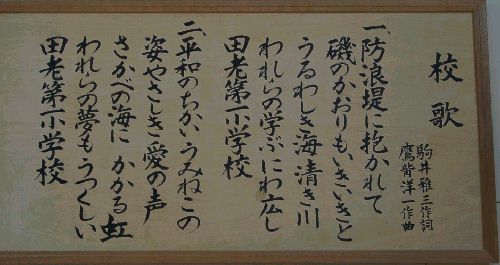 校歌
駒井雅三作詞
鷹觜洋一作曲
一、防浪堤に抱かれて
磯のかおりもいきいきと
うるわしき海清き川
われらの学ぶにわ広し
田老第一小学校
二、平和のちかいうみねこの
姿やさしき愛の声
さかべの海に かかる虹
われらの夢もうつくしい
田老第一小学校